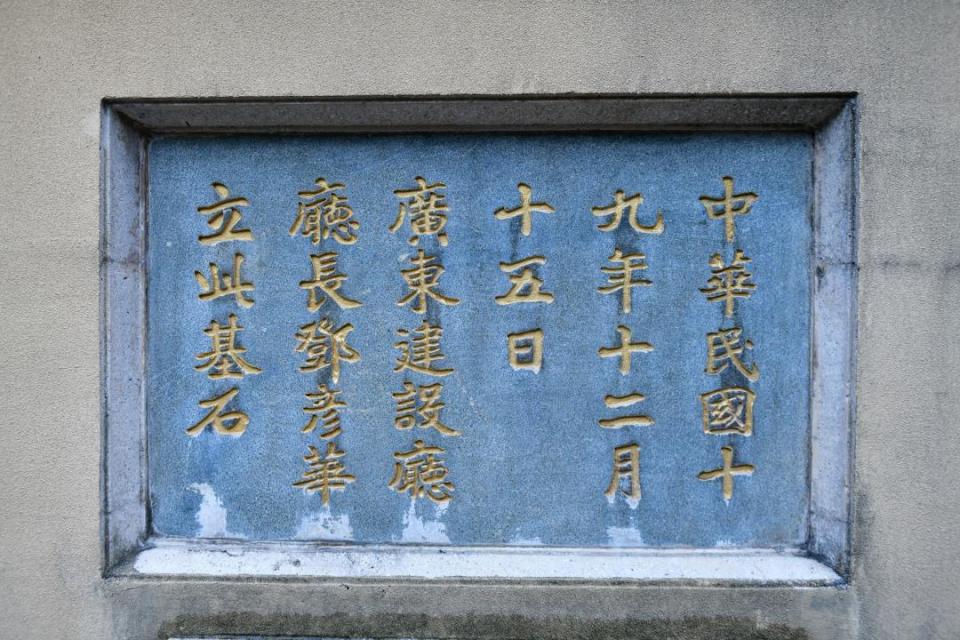 中華民國十
九年十二月
十五日
廣東建設廳
廳長鄧彦華
立此基石